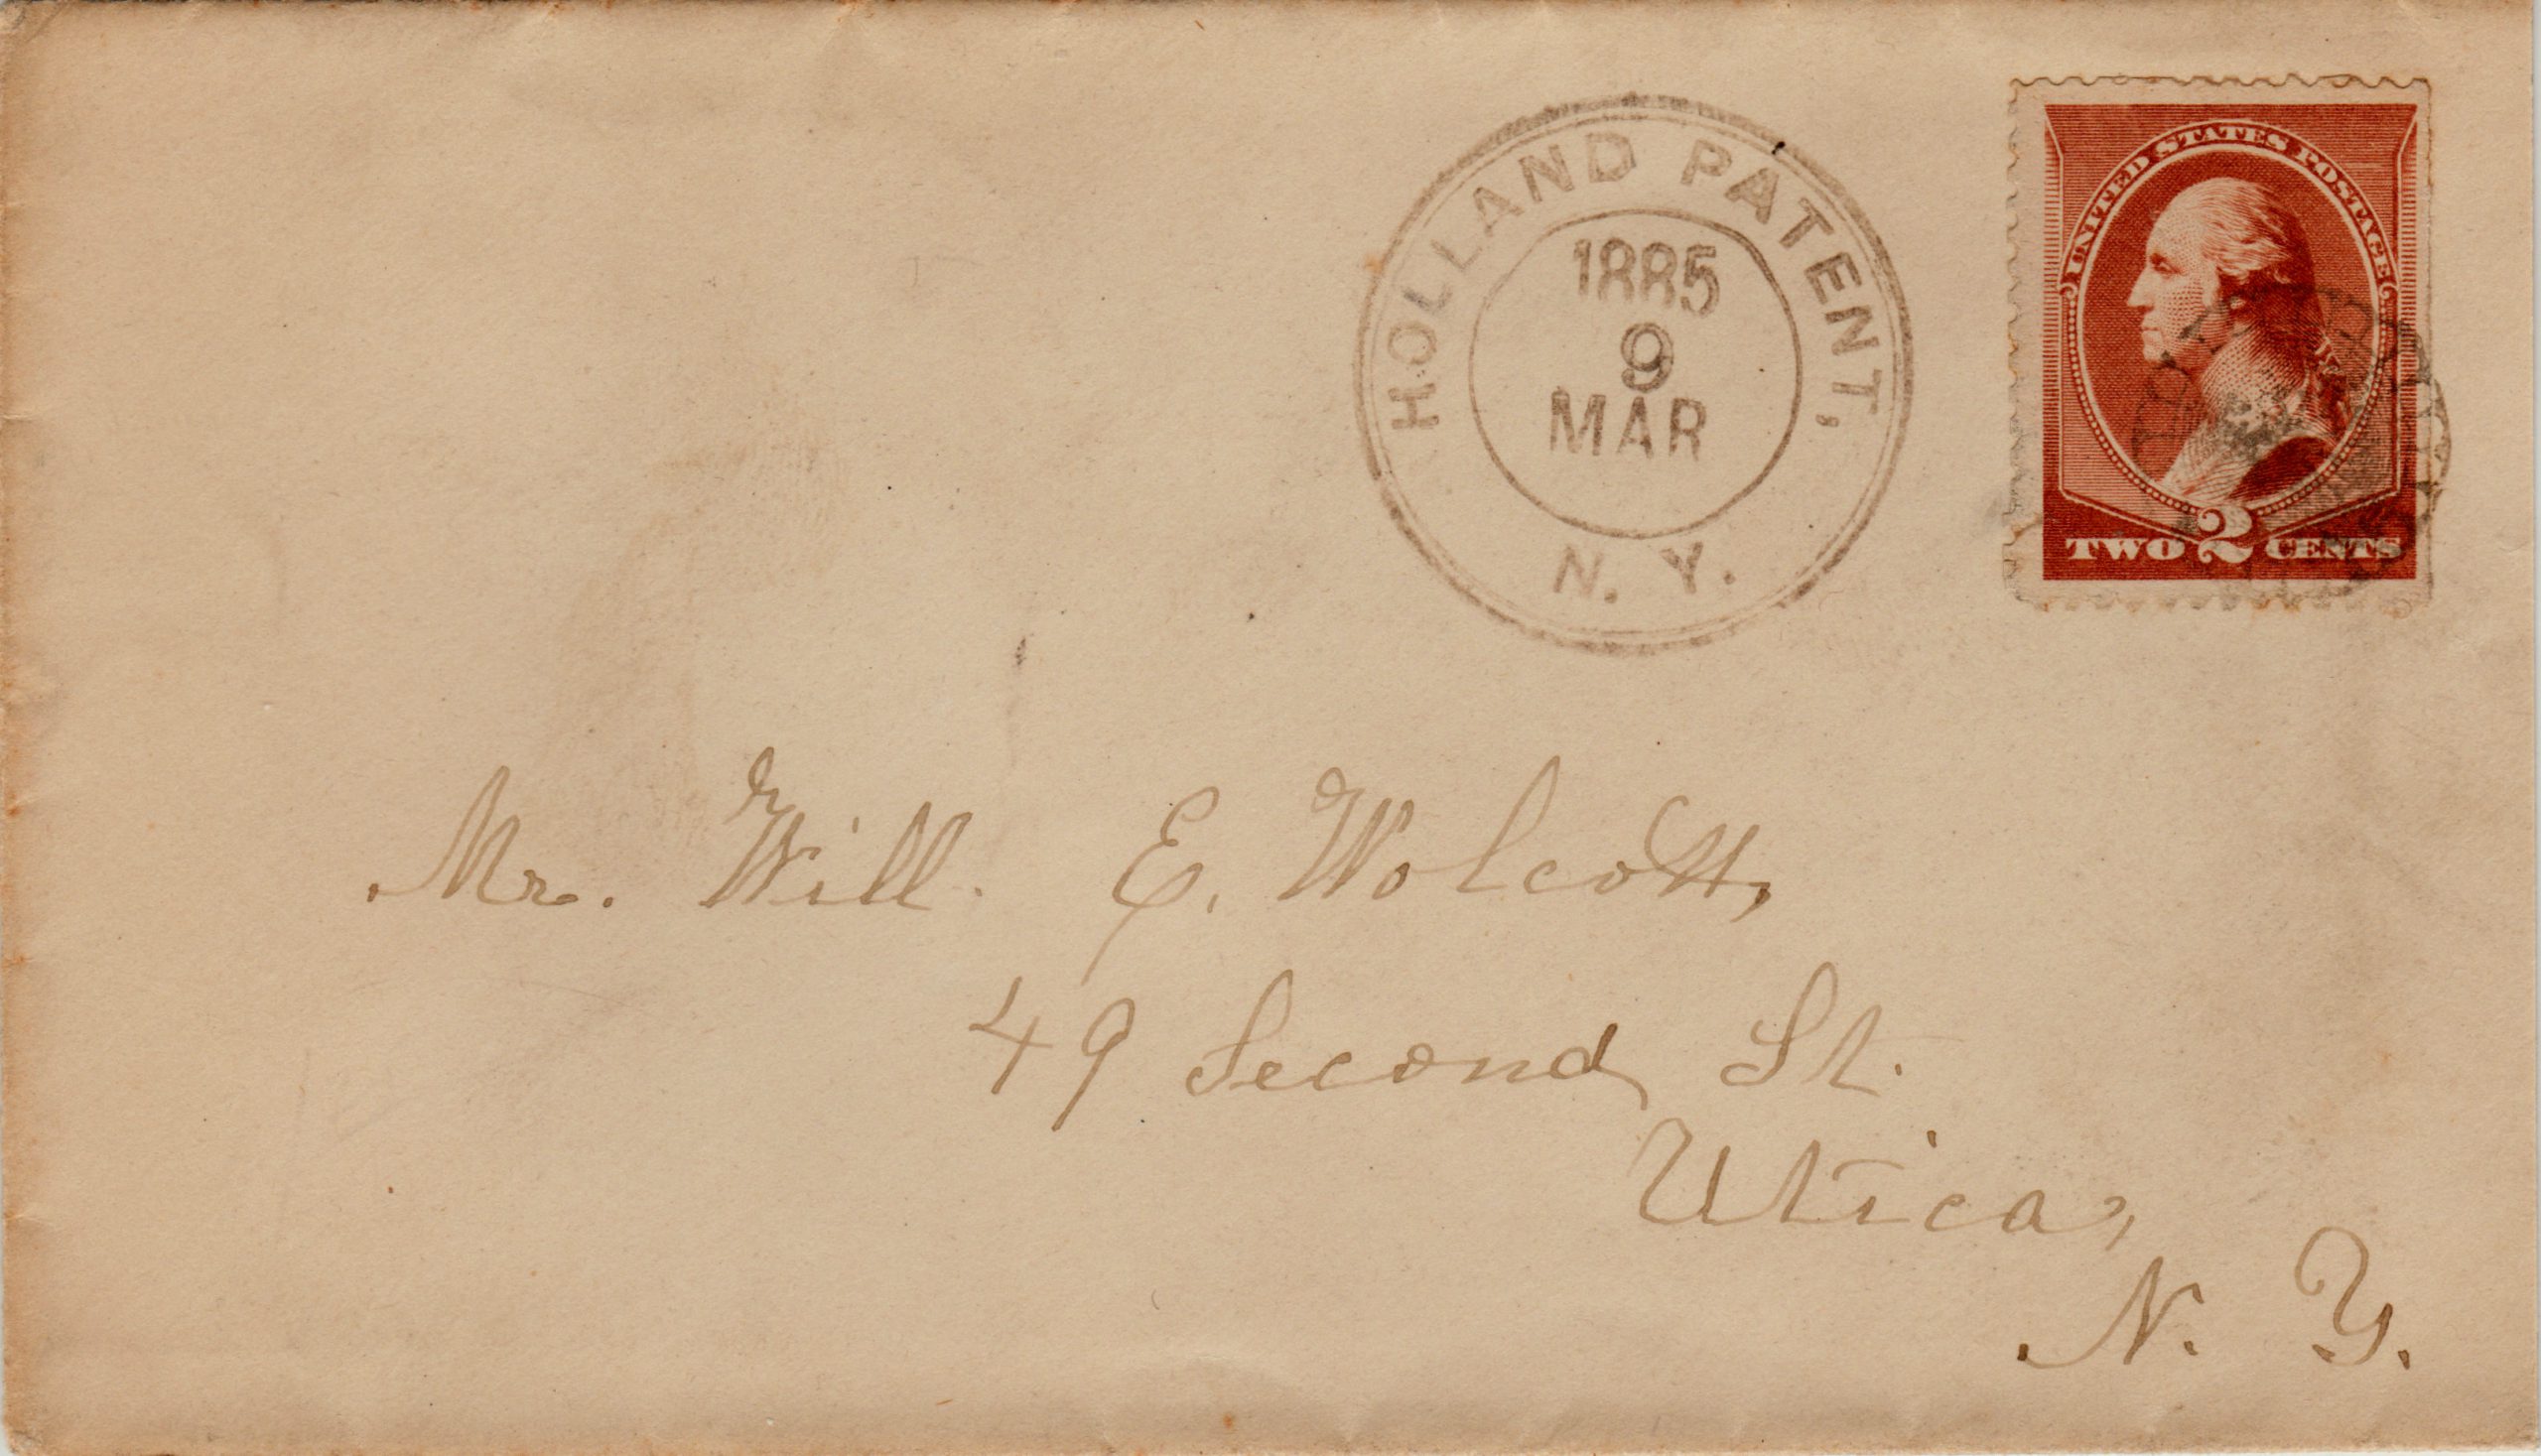 HOLLAND PATENT,
1885
9
MAR
N. Y.
UNITED STATES POSTAGE
TWO 2 CENTS
Mr. Will. E. Wolcott,
49 Second St.
Utica,
N. Y.